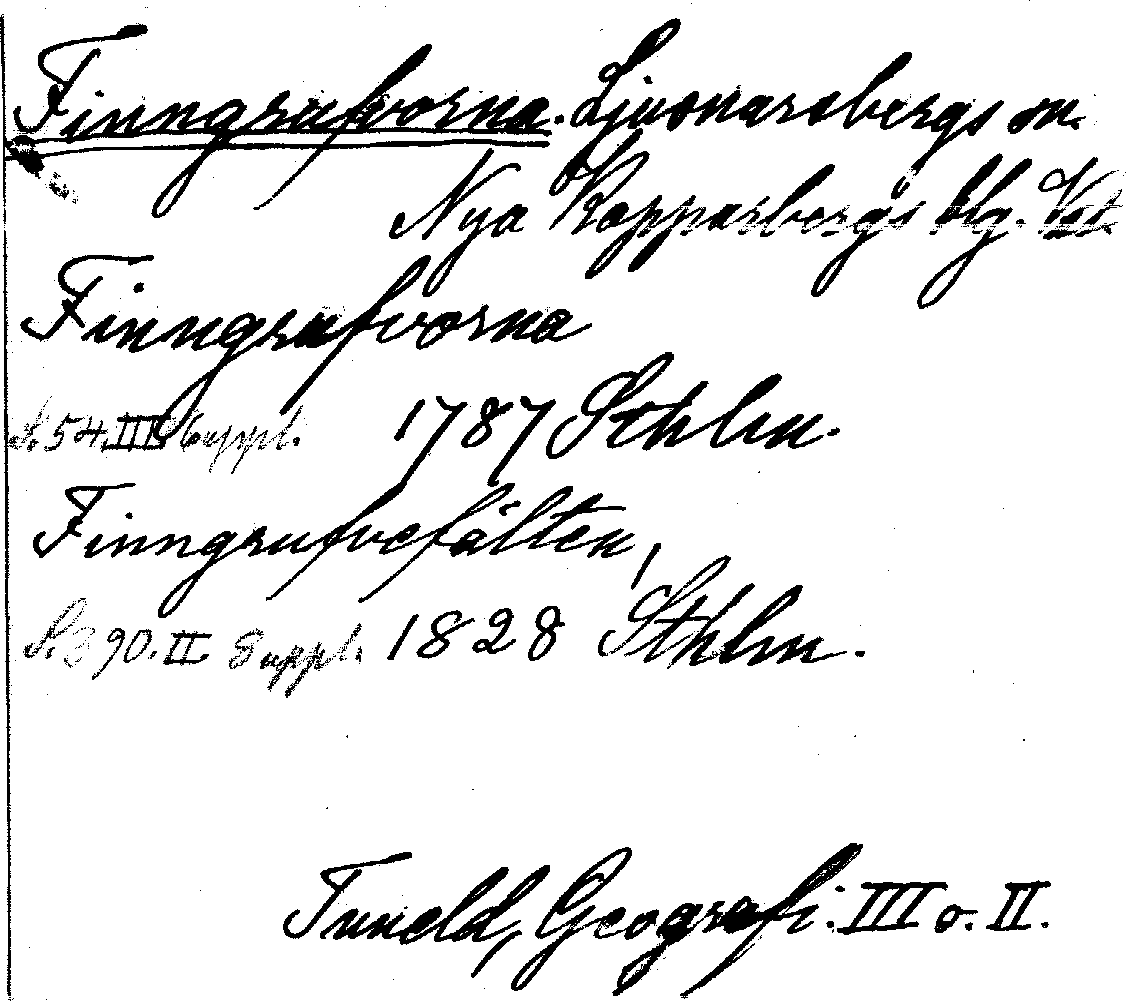 Finngrufvorna. Ljusnarsbergs sn.
Nya Kopparbergs blg. Vstm.
Finngrufvorna
S. 54. III. Suppl. 1787 Sthlm.
Finngrufvefälten,
S. 390. II Suppl. 1828 Sthlm.
Tuneld, Geografi. III o. II.